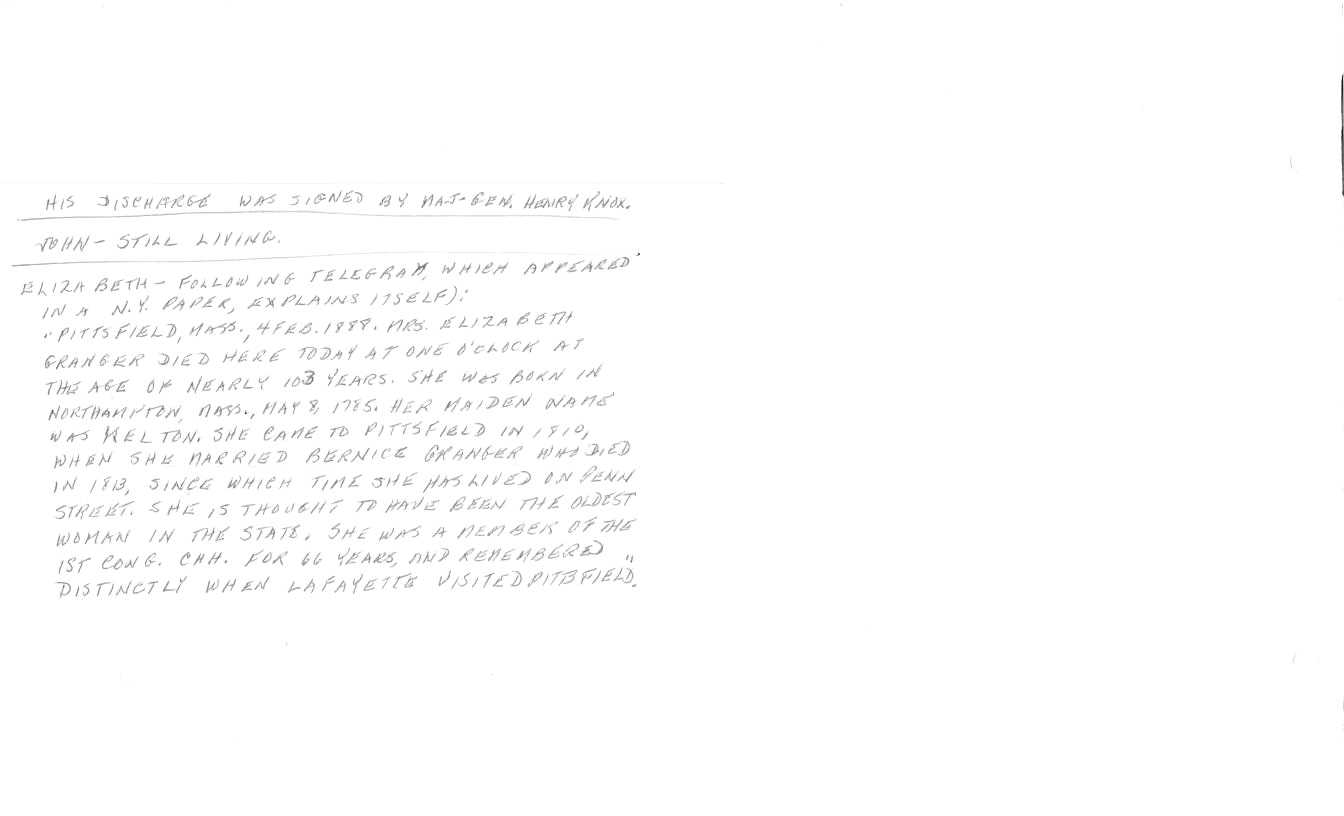 HIS DISCHARGE WAS SIGNED BY MAJ-GEN. HENRY KNOX.
JOHN - STILL LIVING.
ELIZABETH - FOLLOWING TELEGRAM, WHICH APPEARED
IN A N.Y. PAPER, EXPLAINS ITSELF):
"PITTSFIELD, MASS., 4 FEB. 1888. MRS. ELIZABETH
GRANGER DIED HERE TODAY AT ONE O'CLOCK AT
THE AGE OF NEARLY 103 YEARS. SHE WAS BORN IN
NORTHAMPTON, MASS., MAY 8, 1785. HER MAIDEN NAME
WAS KELTON. SHE CAME TO PITTSFIELD IN 1810,
WHEN SHE MARRIED BERNICE GRANGER WHO DIED
IN 1813, SINCE WHICH TIME SHE HAS LIVED ON PENN
STREET. SHE IS THOUGHT TO HAVE BEEN THE OLDEST
WOMAN IN THE STATE. SHE WAS A MEMBER OF THE
1ST CONG. CHH. FOR 66 YEARS, AND REMEMBERED
DISTINCTLY WHEN LAFAYETTE VISITED PITTSFIELD."